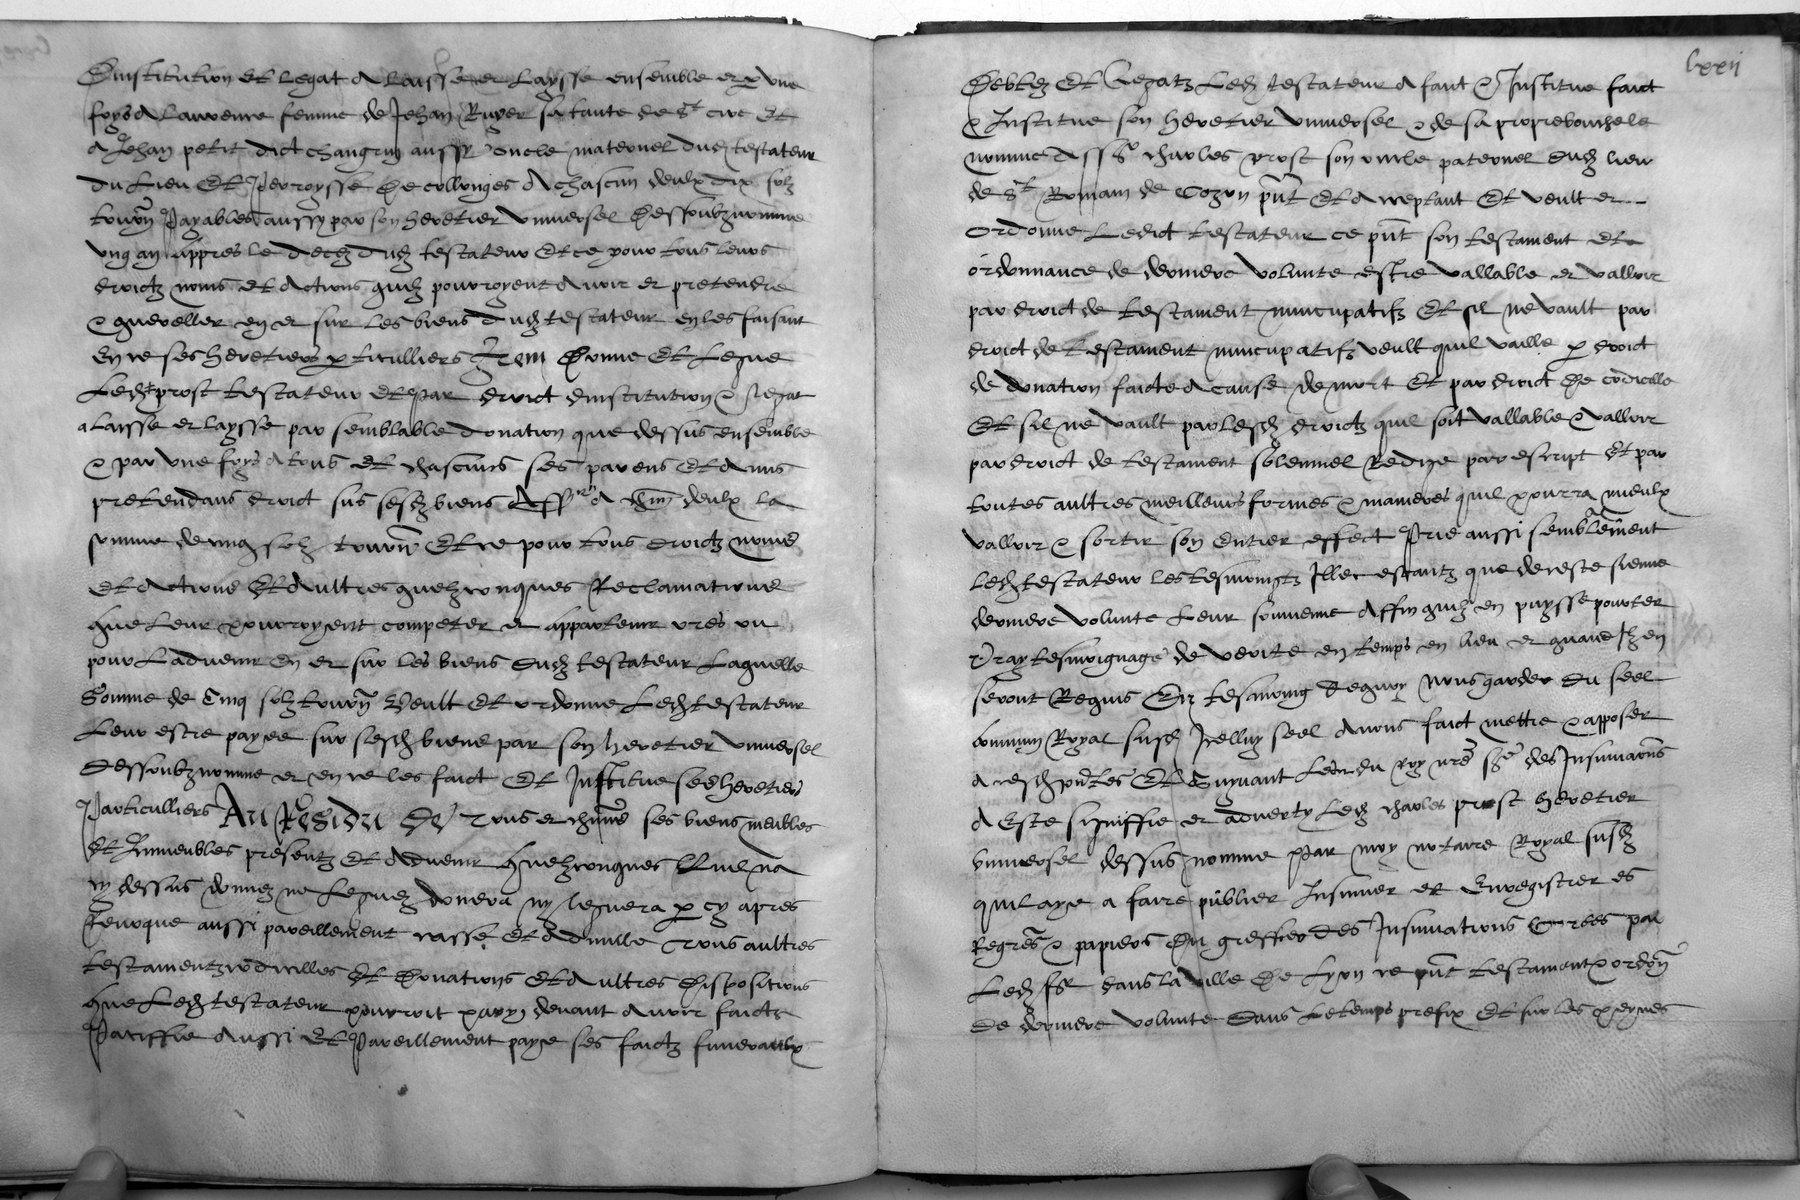 Dinstitution et legat a laisse et laysse ensemble et p une
foys a laurence femme de Jehan Ruyer sa tante de St cire Et
a Jehan petit dict changrin aussy oncle maternel dud testateur
du lieu Et parroysse de collonges a chascun deulx dix solz
tourn payables aussy par son heretier universel dessoubz nomme
ung an appres le decez dud testateur Et ce pour tous leurs
droictz noms et actions quilz pourroyent avoir et pretendre
& quereller en et sur les biens dud testateur en les faisant
en ce ses heretiers p ticulliers Item Donne Et legue
Led prost testateur Et par droict dinstitution & legat
a laisse et laysse par semblable donation que dessus ensemble
& par une foys a tous et chascuns ses parens Et amys
pretendans droict sus sesd biens a chun deulx la
somme de cinq solz tourn Et ce pour tous droictz noms
et actions Et aultres quelzconques Reclamations
que leur pourroyent competer et appartenir ores ou
pour ladvenir en et sur les biens dud testateur Laquelle
Somme de Cinq solz tourn Veult Et ordonne Led testateur
Leur estre payee sur sesd biens par son heretier universel
dessoubz nomme et en ce les faict Et Institue ses heretiers
Particulliers Au Residu De Tous et chuns ses biens meubles
Et Immeubles presentz Et advenir quelzconques Quil na
cy dessus donnez ne leguez donera ny leguera p cy apres
Revoque aussi pareillement casse Et adnulle Tous aultres
testamentz codicilles Et donations Et aultres dispositions
que Led testateur pourroit par cy devant avoir faictz
Pariffie aussi Et pareillement paye ses faictz funeraulx
lxxii
Debtez Et Legatz Led testateur a faict & Institue faict
& Institue son heretier universel & de sa propre bouche le
nomme charles prost son oncle paternel dud lieu
de St Romain de Cozon pnt Et acceptant Et veult et
Ordonne Ledict testateur ce pnt son testament et
ordonnance de derniere volunte estre vallable et valloir
par droict de testament nuncupatifz Et sil ne vault par
droict de testament nuncupatifz veult quil vaille p droict
de donation faicte a cause de mort Et par droict De codicille
Et sil ne vault par lesd droictz quil soit vallable & valloir
par droict de testament solennel Redige par escript Et par
toutes aultres meilleurs formes & manieres quil pourra mieulx
valloir & sortir son entier effect Prie aussi semblement
Led testateur les tesmoingtz Illec estantz que de ceste sienne
derniere volunte Leur souvienne affin quilz en puysse pourter
Vray tesmoignage de verite en temps en lieu et quand Ilz en
seront Requis En tesmoing Dequoy Nous garder du seel
commun Royal susd Icelluy seel avons faict mettre & apposer
a cesd pntes Et Suyvant Ledict du roy nre sre des Insinuaons
a Este signiffie et adverty Led charles prost heretier
universel dessus nomme Par moy notaire Royal susd
quil aye a faire publier Insinuer et Enregistrer es
Regres & papiers Du greffier des Insinuations par
Led sr dans la ville De Lyon ce pnt testament & ordon
de derniere volunte dans Le temps prefix Et sur les peynes